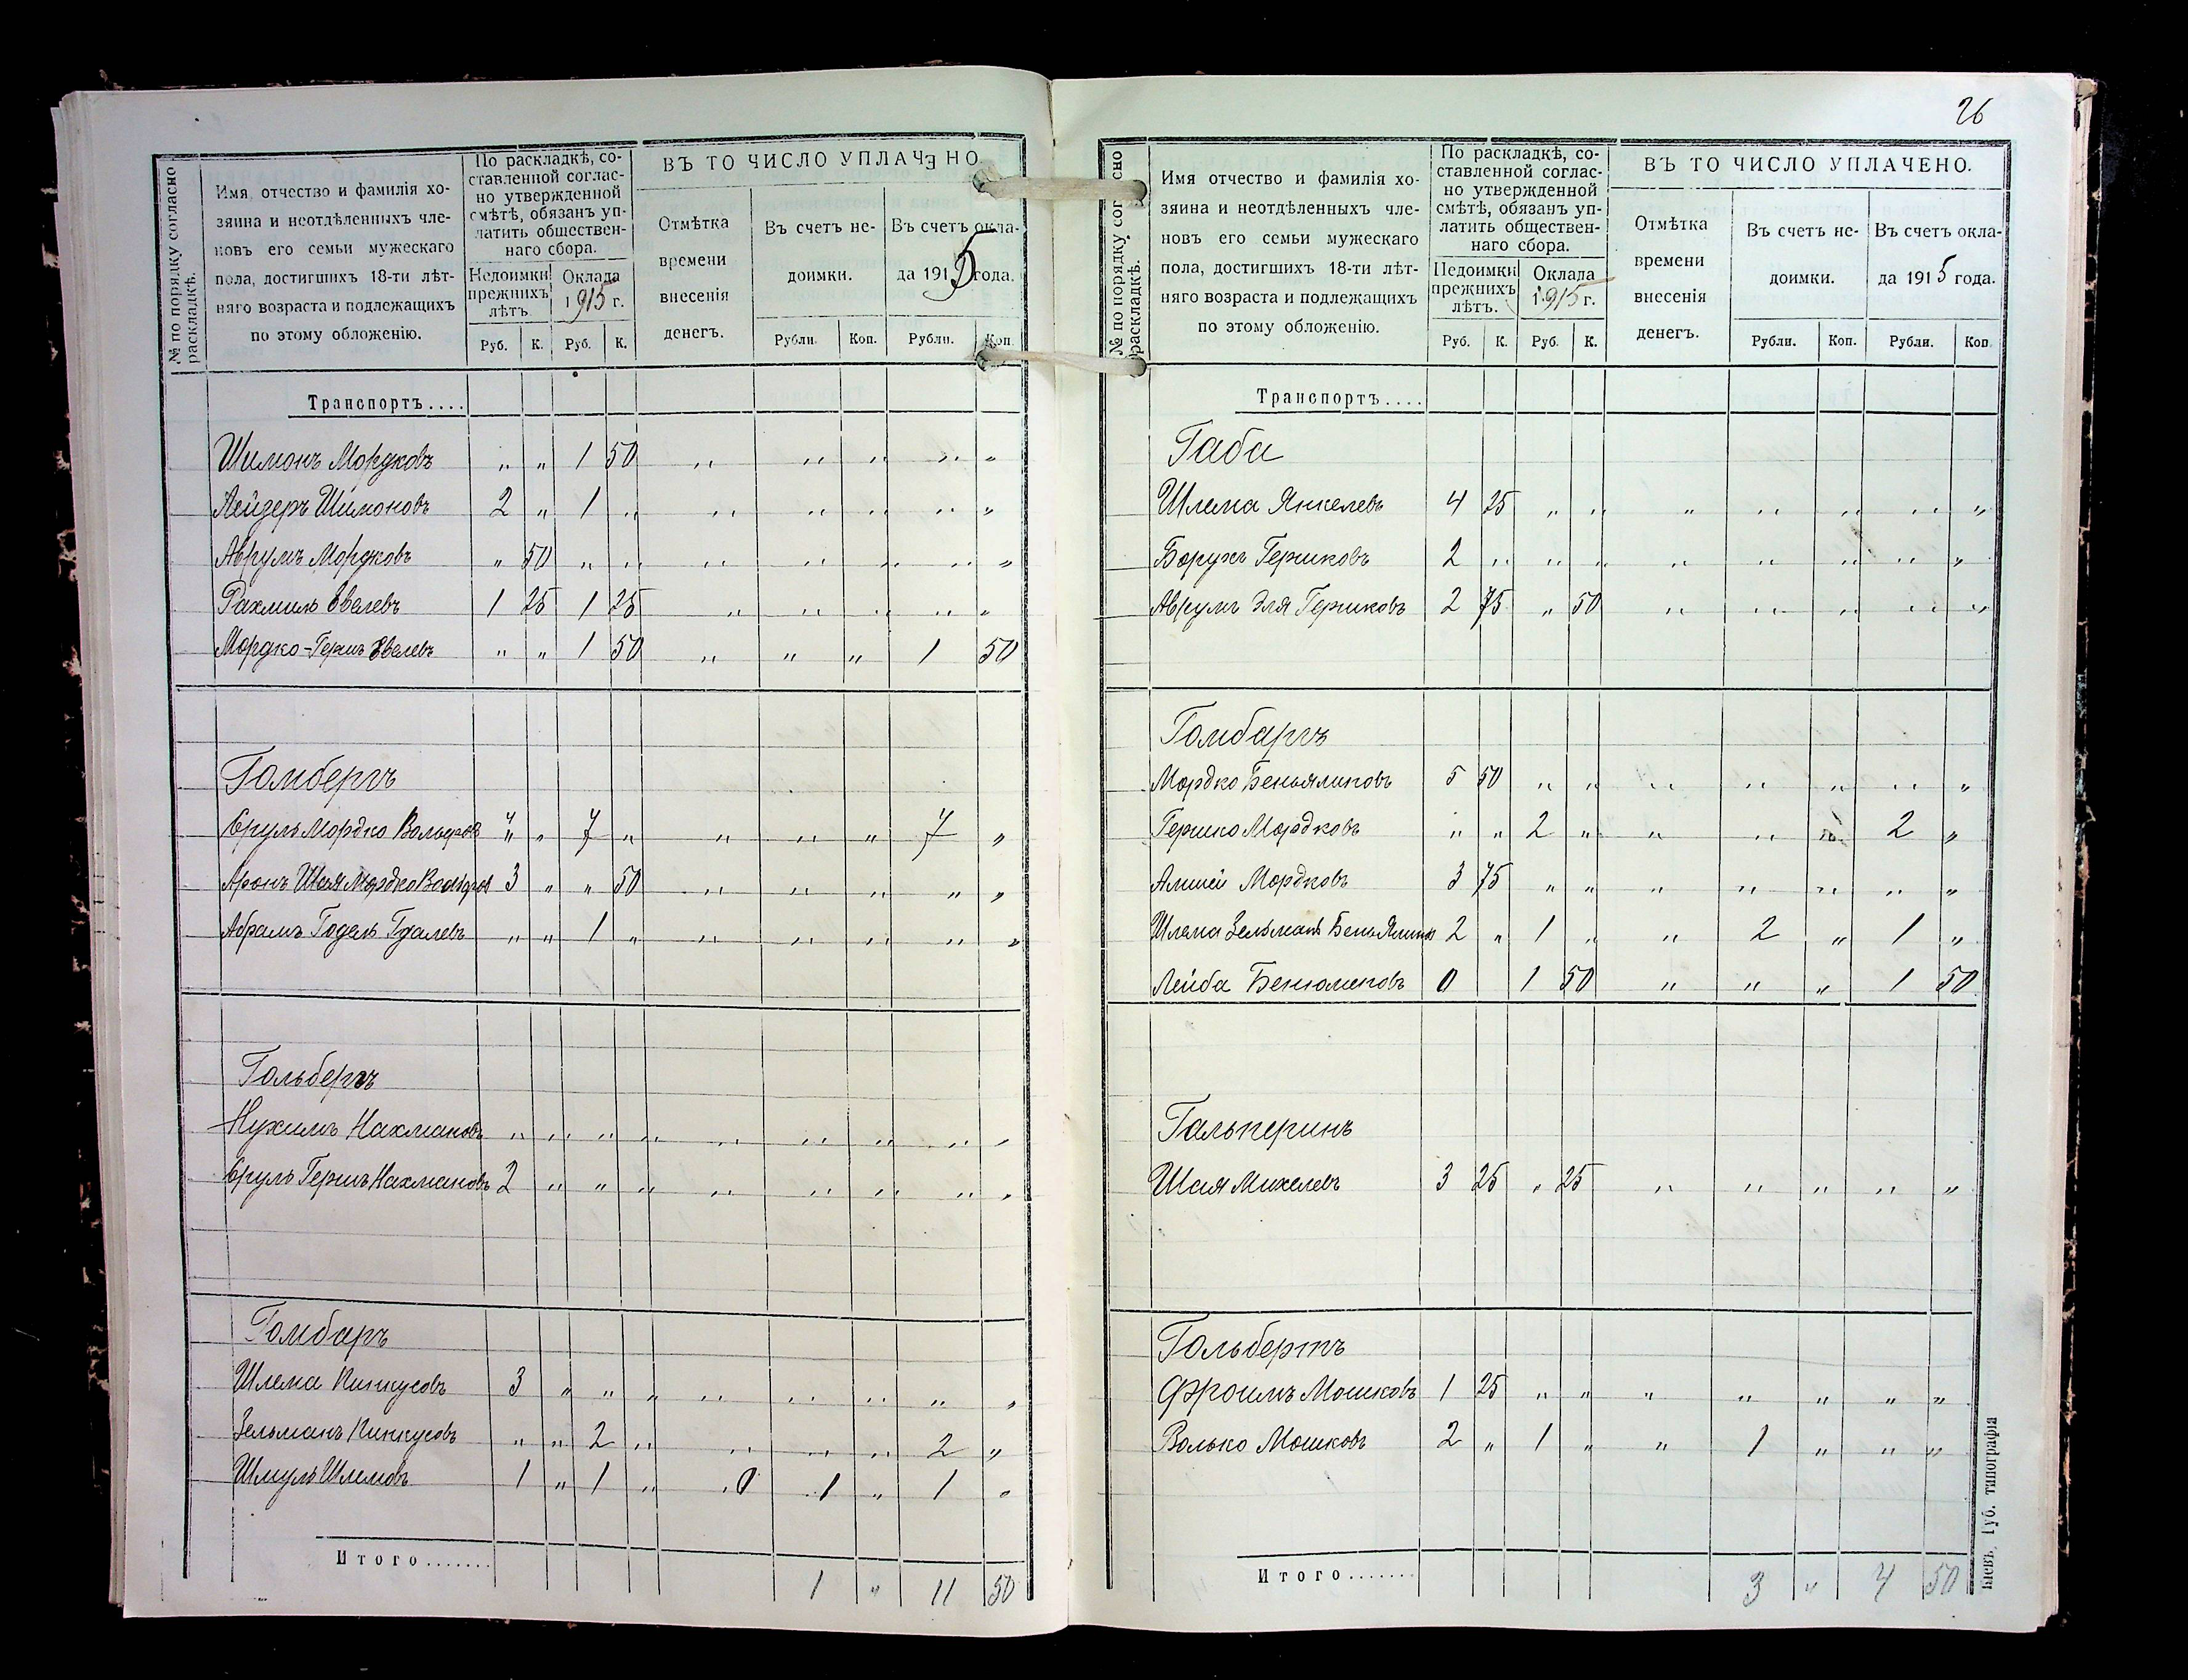 № по порядку согласно раскладкѣ.
Имя, отчество и фамилія хо-
зяина и неотдѣленныхъ чле-
новъ его семьи мужескаго
пола, достигшихъ 18-ти лѣт-
няго возраста и подлежащихъ
по этому обложенію.
По раскладкѣ, со-
ставленной соглас-
но утвержденной
смѣтѣ, обязанъ уп-
латить обществен-
наго сбора.
Недоимки прежнихъ лѣтъ.
Оклада 1915 г.
Руб. К. Руб. К.
ВЪ ТО ЧИСЛО УПЛАЧЭНО.
Отмѣтка
времени
внесенія
денегъ.
Въ счетъ не-
доимки.
Рубли. Коп.
Въ счетъ окла-
да 1915 года.
Рубли. Коп.
Транспортъ....
Шимонъ Мордковъ " " 1 50 " " " " "
Лейзеръ Шимоновъ 2 " 1 " " " " " "
Аврумъ Мордковъ " 50 " " " " " " "
Рахмиль Эвелевъ 1 25 1 25 " " " " "
Мордко-Гершъ Эвелевъ " " 1 50 " " " 1 50
Гомбергъ
Сруль Мордко Вольфов " " 7 " " " " 7 "
Аронъ Шая Мордко Вольфов 3 " " 50 " " " " "
Абрамъ Годель Гдалевъ " " 1 " " " " " "
Гольбергъ
Нухимъ Нахмановъ " " " " " " " " "
Сруль Гершъ Нахмановъ 2 " " " " " " " "
Гомбаръ
Шлема Пинкусовъ 3 " " " " " " " "
Зельманъ Пинкусовъ " " 2 " " " " 2 "
Шмуль Шлемовъ 1 " 1 " " 1 " 1 "
Итого....... 1 " 11 50
26
№ по порядку согласно раскладкѣ.
Имя отчество и фамилія хо-
зяина и неотдѣленныхъ чле-
новъ его семьи мужескаго
пола, достигшихъ 18-ти лѣт-
няго возраста и подлежащихъ
по этому обложенію.
По раскладкѣ, со-
ставленной соглас-
но утвержденной
смѣтѣ, обязанъ уп-
латить обществен-
наго сбора.
Недоимки прежнихъ лѣтъ.
Оклада 1915 г.
Руб. К. Руб. К.
ВЪ ТО ЧИСЛО УПЛАЧЕНО.
Отмѣтка
времени
внесенія
денегъ.
Въ счетъ не-
доимки.
Рубли. Коп.
Въ счетъ окла-
да 1915 года.
Рубли. Коп.
Транспортъ....
Габа
Шлема Янкелевъ 4 25 " " " " " " "
Борухъ Гершковъ 2 " " " " " " " "
Аврумъ Эля Гершковъ 2 75 " 50 " " " " "
Гомбаргъ
Мордко Беньяминовъ 5 50 " " " " " " "
Гершко Мордковъ " " 2 " " " " 2 "
Мордковъ 3 75 " " " " " " "
Шлема Зельманъ 2 " 1 " " 2 " 1 "
Лейба Бенюменовъ 0 1 50 " " " 1 50
Гальперинъ
Шая Михелевъ 3 25 " 25 " " " " "
Гольбертъ
Фроимъ Мошковъ 1 25 " " " " " " "
Волько Мошковъ 2 " 1 " " 1 " " "
Итого....... 3 " 4 50
Кіевъ, Губ. типографія